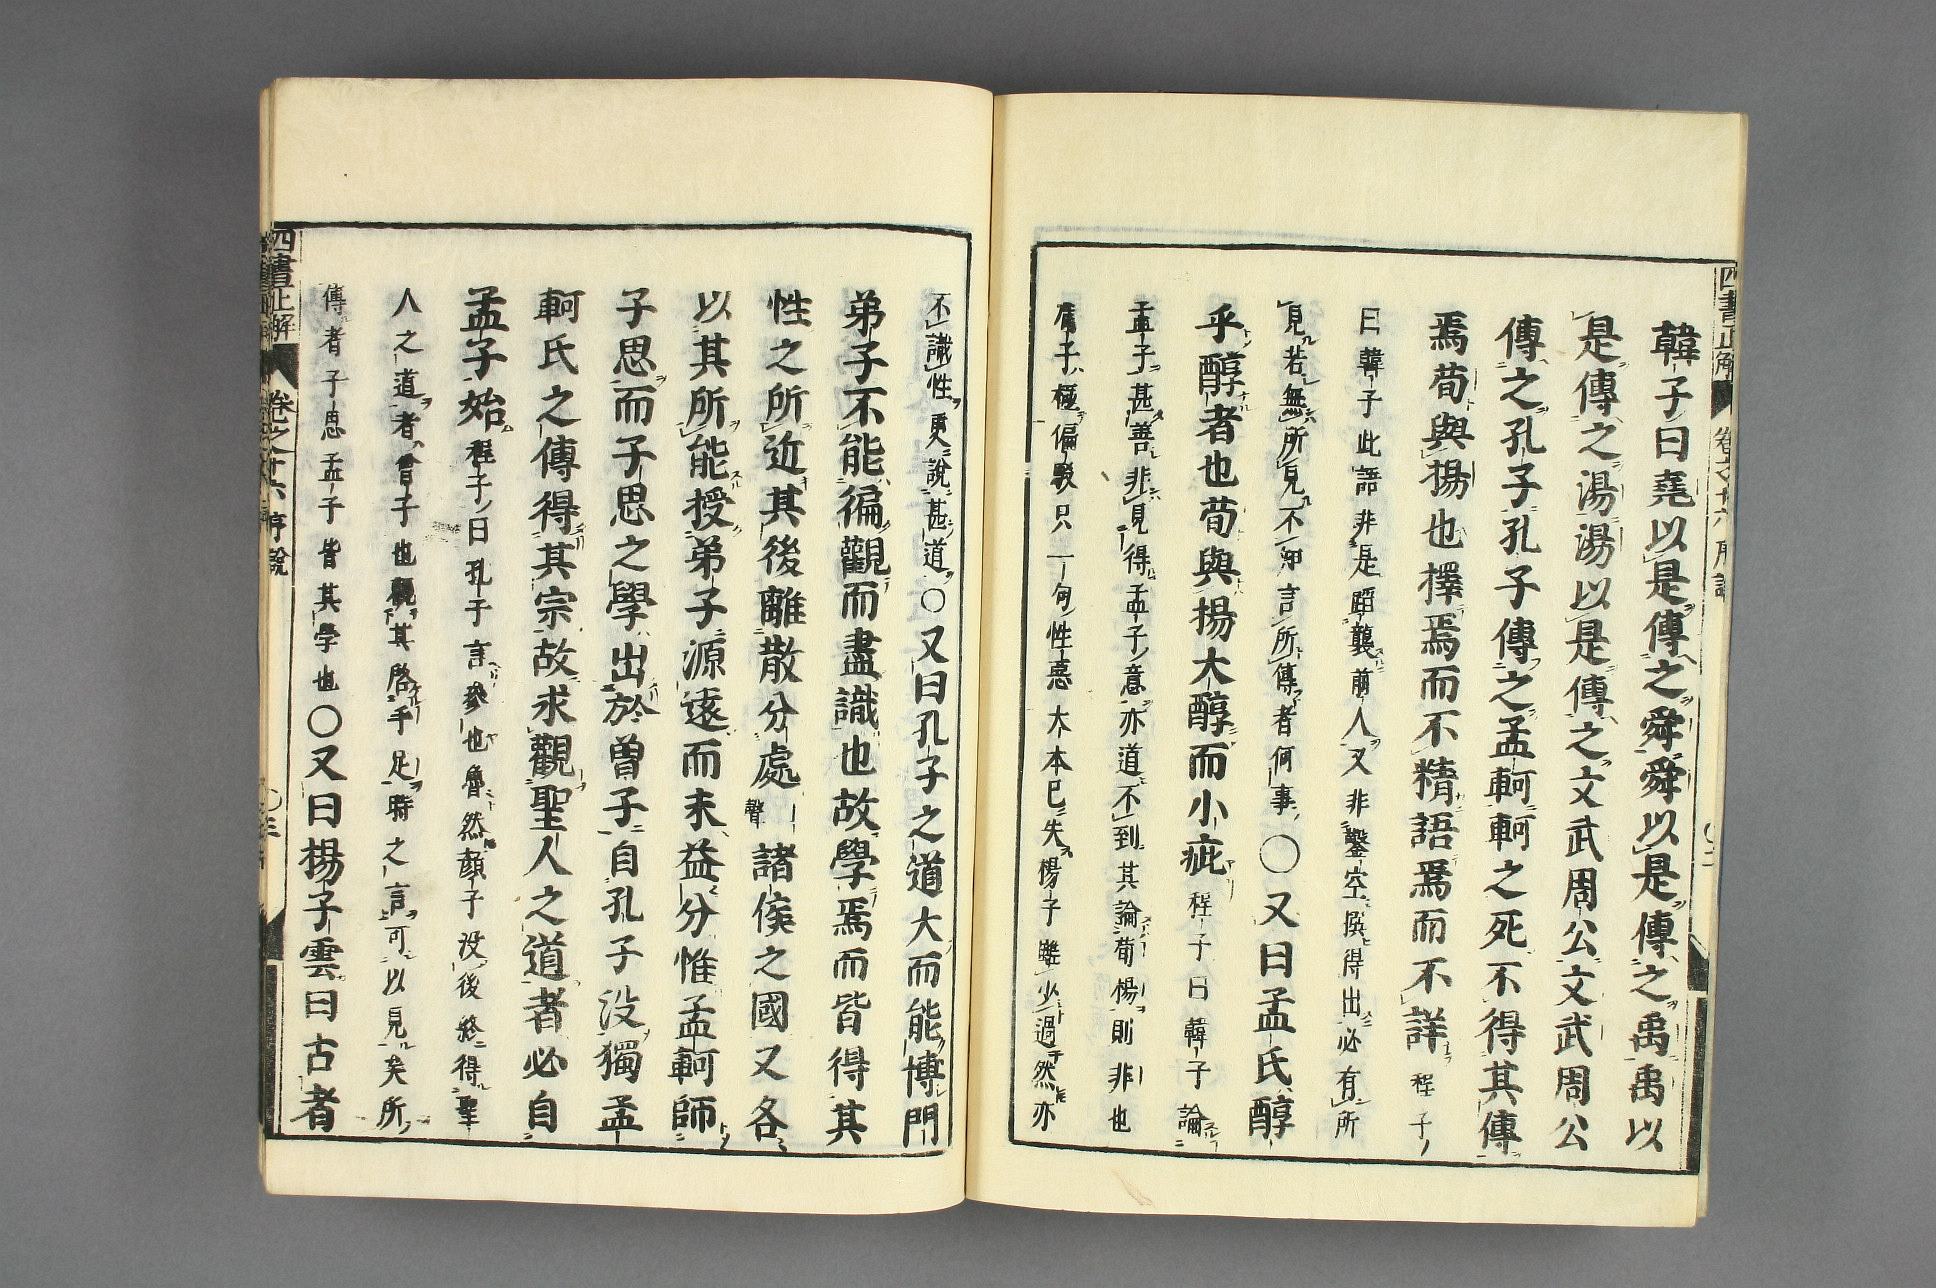 韓子曰堯以是傳之舜舜以是傳之禹禹以
是傳之湯湯以是傳之文武周公文武周公
傳之孔子孔子傳之孟軻軻之死不得其傳
焉荀與揚也擇焉而不精語焉而不詳程子
曰韓子此語非是蹈襲前人又非鑿空撰得出必有所
見若無所見不知言所傳者何事○又曰孟氏醇
乎醇者也荀與揚大醇而小疵程子曰韓子論
孟子甚善非見得孟子意亦道不到其論荀楊則非也
荀子極偏駁只一句性惡大本已失楊子雖少過然亦
不識性更說甚道○又曰孔子之道大而能博門
弟子不能徧觀而盡識也故學焉而皆得其
性之所近其後離散分處諸侯之國又各
以其所能授弟子源遠而末益分惟孟軻師
子思而子思之學出於曾子自孔子没獨孟
軻氏之傳得其宗故求觀聖人之道者必自
孟子始程子曰孔子言參也魯然顏子没後終得聖
人之道者曾子也觀其啓手足時之言可以見矣所
傳者子思孟子皆其學也○又曰揚子雲曰古者
四書正解 卷之十六 序說